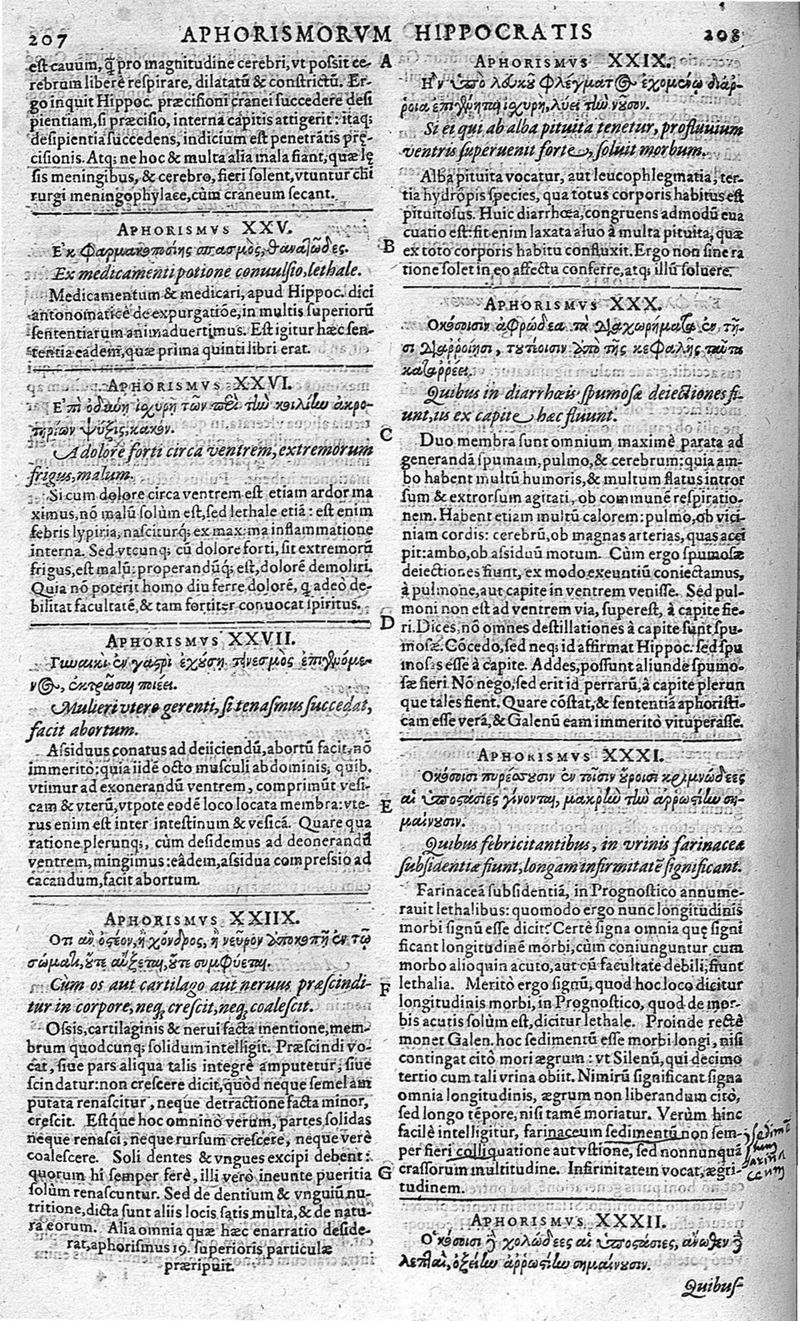 207
APHORISMORVM HIPPOCRATIS
208
est cauum, q̃ pro magnitudine cerebri, vt possit ce-
rebrum liberè respirare, dilatatũ & constrictũ. Er-
go inquit Hippoc. præcisioni cranei succedere desi
pientiam, si præcisio, interna capitis attigerit: itaq;
desipientia succedens, indicium est penetratis pręcisionis. Atq; ne hoc & multa alia mala fiant, quæ lę
sis meningibus, & cerebro, fieri solent, vtuntur chi
rurgi meningophylace, cùm craneum secant.
APHORISMVS XXV.
Ἐκ φαρμακοποσίης σπασμὸς, θανατῶδες.
Ex medicamenti potione conuulsio, lethale.
Medicamentum & medicari, apud Hippoc. dici
antonomaticè de expurgatiõe, in multis superiorũ
sententiarum animaduertimus. Est igitur hæc sen-
tentia eadem, quæ prima quinti libri erat.
APHORISMVS XXVI.
Ἐπὶ ὀδύνῃ ἰσχυρῇ τῶν περὶ τὴν κοιλίην ἀκρο-
τηρίων ψύξις, κακόν.
A dolore forti circa ventrem, extremorum
frigus, malum.
Si cum dolore circa ventrem est etiam ardor ma
ximus, nõ malũ solùm est, sed lethale etiã: est enim
febris lypiria, nasciturq; ex maxima inflammatione
interna. Sed vtcunq; cũ dolore forti, sit extremorũ
frigus, est malũ: properandũq; est, dolorẽ demoliri.
Quia nõ poterit homo diu ferre dolorẽ, q̃ adeò de-
bilitat facultatẽ, & tam fortiter conuocat spiritus.
APHORISMVS XXVII.
Γυναικὶ ἐν γαστρὶ ἐχούσῃ τεινεσμὸς ἐπιγενόμε-
νος, ἐκτρῶσαι ποιέει.
Mulieri vtero gerenti, si tenasmus succedat,
facit abortum.
Assiduus conatus ad deiiciendũ, abortũ facit, nõ
immeritò: quia iidẽ octo musculi abdominis, quib.
vtimur ad exonerandũ ventrem, comprimũt vesi-
cam & vterũ, vtpote eodẽ loco locata membra: vte-
rus enim est inter intestinum & vesicã. Quare qua
ratione plerunq;, cùm desidemus ad deonerandũ
ventrem, mingimus: eâdem, assidua compressio ad
cacandum, facit abortum.
APHORISMVS XXIIX.
Ὅτι ἂν ὀστέον, ἢ χόνδρος, ἢ νεῦρον ἀποκοπῇ ἐν τῷ
σώματι, οὔτε αὔξεται, οὔτε συμφύεται.
Cùm os aut cartilago aut neruus præscindi-
tur in corpore, neq, crescit, neq, coalescit.
Ossis, cartilaginis & nerui facta mentione, mem-
brum quodcunq; solidum intelligit. Præscindi vo-
cat, siue pars aliqua talis integrè amputetur, siue
scindatur: non crescere dicit, quòd neque semel am
putata renascitur, neque detractione facta minor,
crescit. Estq́ue hoc omnino verum, partes solidas
neque renasci, neque rursum crescere, neque verè
coalescere. Soli dentes & vngues excipi debent:
quorum hi semper ferè, illi verò ineunte pueritia
solùm renascuntur. Sed de dentium & vnguiũ nu-
tritione, dicta sunt aliis locis satis multa, & de natu-
ra eorum. Alia omnia quæ hæc enarratio deside-
rat, aphorismus 19. superioris particulæ
præripuit.
A
B
C
D
E
F
G
APHORISMVS XXIX.
Ἢν ὑπὸ λευκοῦ φλέγματος ἐχομένῳ διάρ-
ροια ἐπιγένηται ἰσχυρὴ, λύει τὴν νοῦσον.
Si ei qui ab alba pituita tenetur, profluuium
ventris superuenit forte, soluit morbum.
Alba pituita vocatur, aut leucophlegmatia, ter-
tia hydropis species, qua totus corporis habitus est
pituitosus. Huic diarrhœa, congruens admodũ eua
cuatio est: fit enim laxata aluo à multa pituita, quæ
ex toto corporis habitu confluxit. Ergo non sine ra
tione solet in eo affectu conferre, atq; illũ soluere.
APHORISMVS XXX.
Ὁκόσοισιν ἀφρώδεα τὰ διαχωρήματα ἐν τῇ-
σι διαρροίῃσι, τουτέοισιν ἀπὸ τῆς κεφαλῆς ταῦτα
καταρρέει.
Quibus in diarrhœis spumosæ deiectiones fi-
unt, iis ex capite hæc fluunt.
Duo membra sunt omnium maximè parata ad
generandã spumam, pulmo, & cerebrum: quia am-
bo habent multũ humoris, & multum flatus intror
sum & extrorsum agitati, ob communẽ respiratio-
nem. Habent etiam multũ calorem: pulmo, ob vici-
niam cordis: cerebrũ, ob magnas arterias, quas acci
pit: ambo, ob assiduũ motum. Cùm ergo spumosæ
deiectiones fiunt, ex modo exeuntiũ coniectamus,
à pulmone, aut capite in ventrem venisse. Sed pul-
moni non est ad ventrem via, superest, à capite fie-
ri. Dices, nõ omnes destillationes à capite sunt spu-
mosæ. Cõcedo, sed neq; id affirmat Hippoc. sed spu
mosas esse à capite. Addes, possunt aliunde spumo-
sæ fieri. Nõ nego, sed erit id perrarũ, à capite plerun
que tales fient. Quare cõstat, & sententiã aphoristi-
cam esse verã, & Galenũ eam immeritò vituperasse.
APHORISMVS XXXI.
Ὁκόσοισι πυρέσσουσιν ἐν τοῖσιν οὔροισι κριμνώδεες
αἱ ὑποστάσιες γίνονται, μακρὴν τὴν ἀρρωστίην ση-
μαίνουσιν.
Quibus febricitantibus, in vrinis farinaceæ
subsidentiæ fiunt, longam infirmitatẽ significant.
Farinaceã subsidentiã, in Prognostico annume-
rauit lethalibus: quomodo ergo nunc longitudinis
morbi signũ esse dicit? Certè signa omnia quę signi
ficant longitudinẽ morbi, cùm coniunguntur cum
morbo alioquin acuto, aut cũ facultate debili, fiunt
lethalia. Meritò ergo signũ, quod hoc loco dicitur
longitudinis morbi, in Prognostico, quod de mor-
bis acutis solùm est, dicitur lethale. Proinde rectè
monet Galen. hoc sedimentũ esse morbi longi, nisi
contingat citò mori ægrum: vt Silenũ, qui decimo
tertio cum tali vrina obiit. Nimirũ significant signa
omnia longitudinis, ægrum non liberandum citò,
sed longo tẽpore, nisi tamẽ moriatur. Verùm hinc
facilè intelligitur, farinaceum sedimentũ non sem-
per fieri colliquatione aut vstione, sed nonnunquã
crassorum multitudine. Infirmitatem vocat, ægri-
tudinem.
sedimẽ
tum
farina
ceum
APHORISMVS XXXII.
Ὁκόσοισι δὲ χολώδεες αἱ ὑποστάσιες, ἄνωθεν δὲ
λεπταὶ, ὀξείην ἀρρωστίην σημαίνουσιν.
Quibus